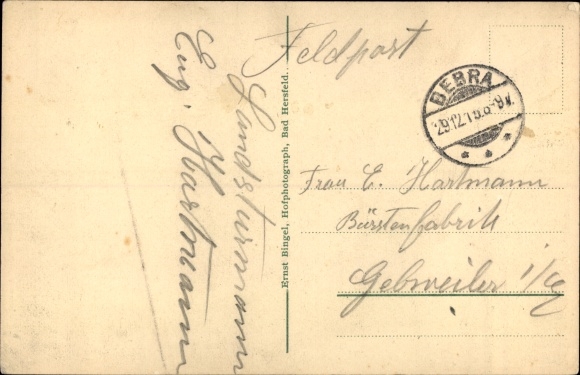 Feldpost
BEBRA
29.12.15.8-9V.
Landsturmann
Eug. Hartmann
Ernst Bingel, Hofphotograph, Bad Hersfeld.
Frau E. Hartmann
Bürstenfabrik
Gebweiler i/E